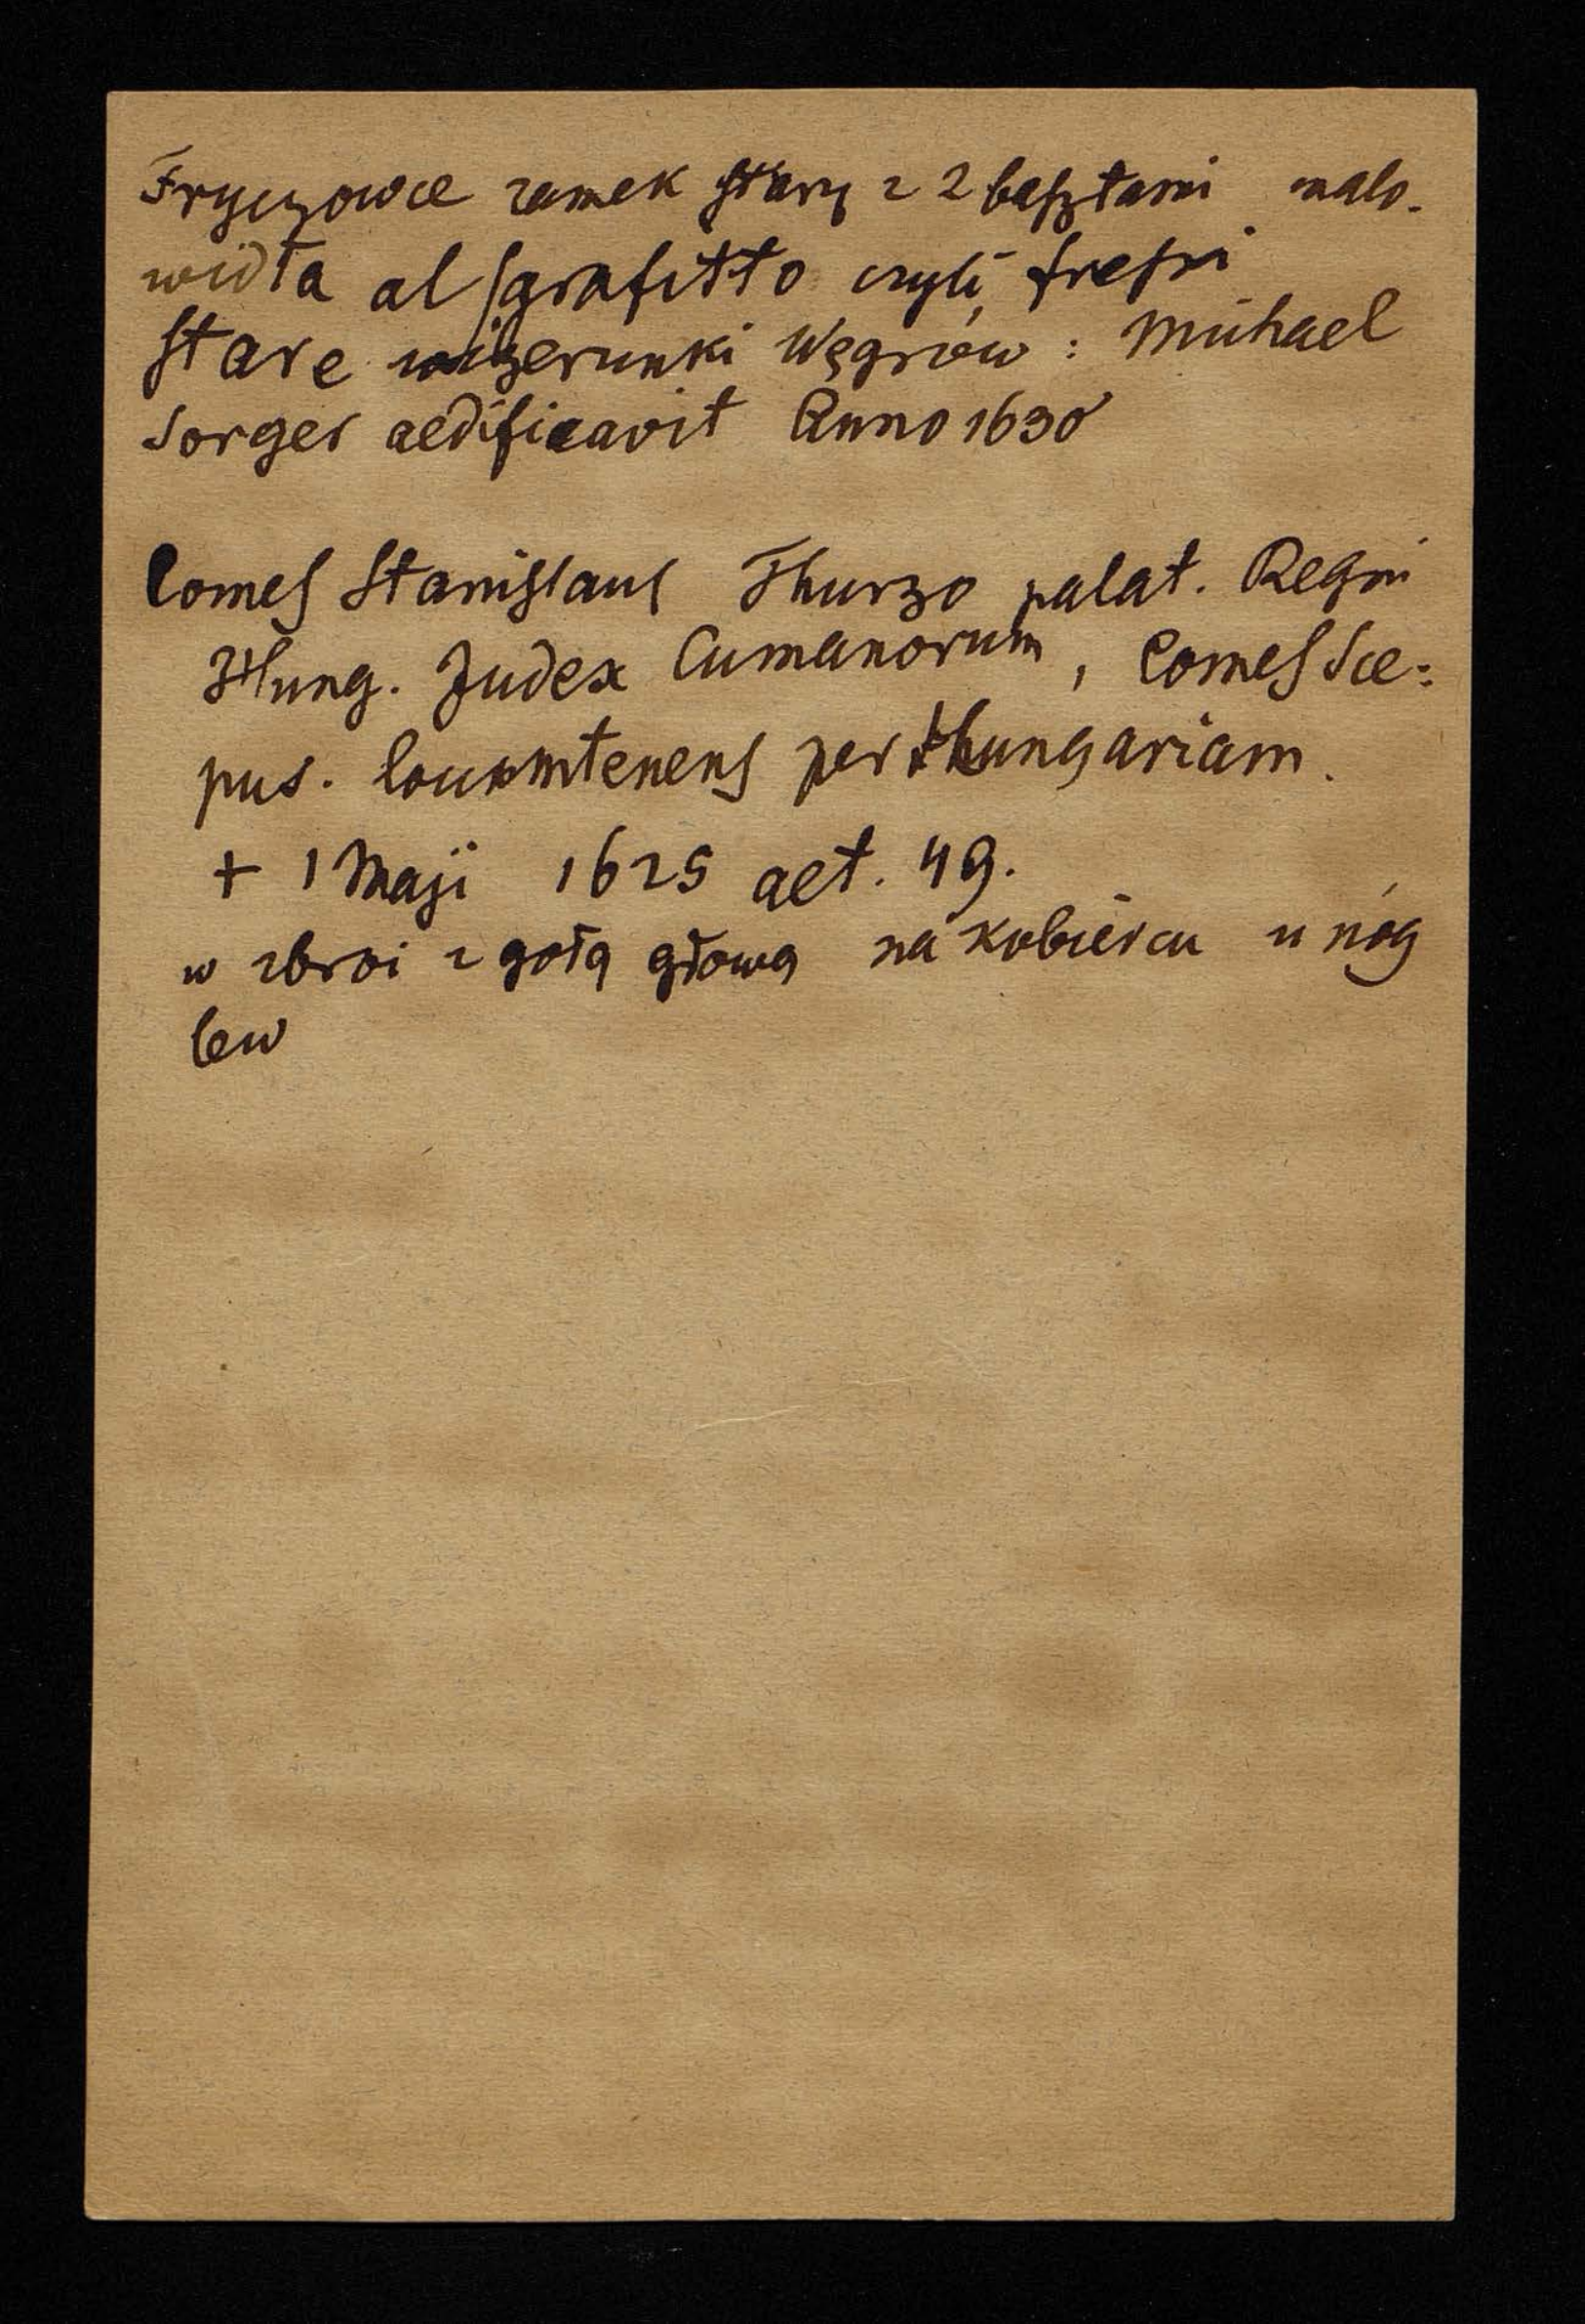 Fryczowce zamek stary z 2 basztami malo-
widła al sgrafitto czyli freski
stare wizerunki Węgrów : Michael
Sorger aedificavit Anno 1630
Comes Stanislaus Thurzo palat. Regni
Hung. Judex Cumanorum, Comes Sce=
pus. locumtenens per Hungariam.
+ 1 Maji 1625 aet. 49.
w zbroi z gołą głową na kobiercu u nóg
lew